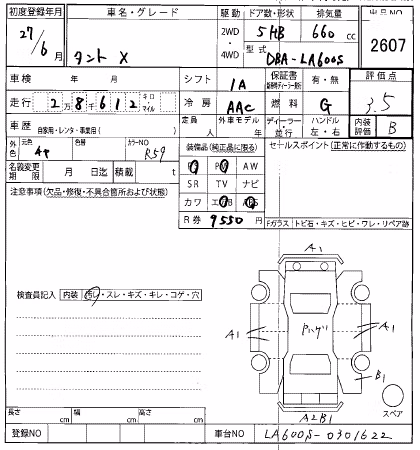 初度登録年月 車名・グレード 駆動 ドア数・形状 排気量 出品NO
27/6月 タント X 2WD・4WD 5HB 660cc 2607
型式 DBA-LA600S
車検 年 月 シフト IA 保証書 有・無 評価点
走行 2万8千612 キロ・マイル 冷房 AAC 燃料 G 3.5
車歴 自家用・レンタ・事業用( ) 定員 人 外車モデル 年 ディーラー・並行 ハンドル 左・右 内装評価 B
外色 元色 色替 カラーNO R59 装備品(純正品に限る) セールスポイント(正常に作動するもの)
名義変更期限 月 日迄 積載 t
注意事項(欠品・修復・不具合箇所および状態)
AW
SR TV ナビ
カワ
R券 9550
Fガラス トビ石・キズ・ヒビ・ワレ・リペア跡
検査員記入 内装 汚レ・スレ・キズ・キレ・コゲ・穴
A1
A1
A1
B1
A2B1
スペア
長さ cm 幅 cm 高さ cm
登録NO 車台NO LA600S-0301622